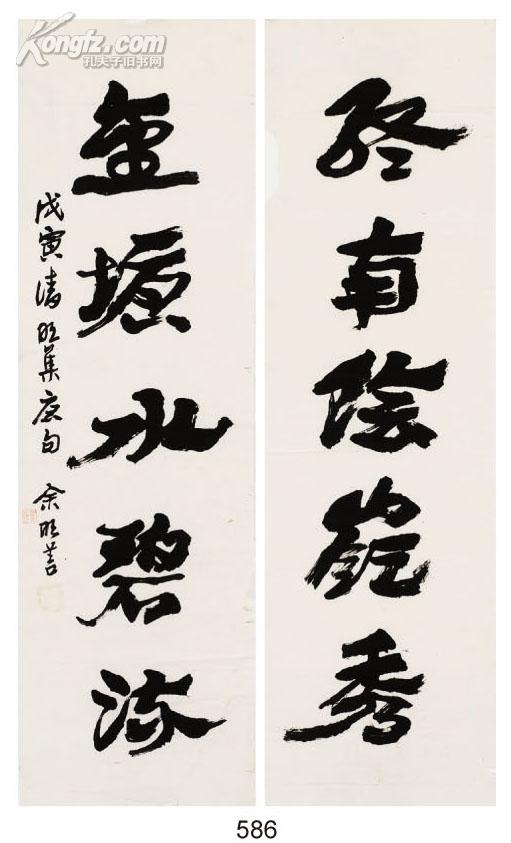 Kongfz.com
孔夫子旧书网
終南陰嶺秀
金塘水碧流
戊寅清明集唐句 余明善
586